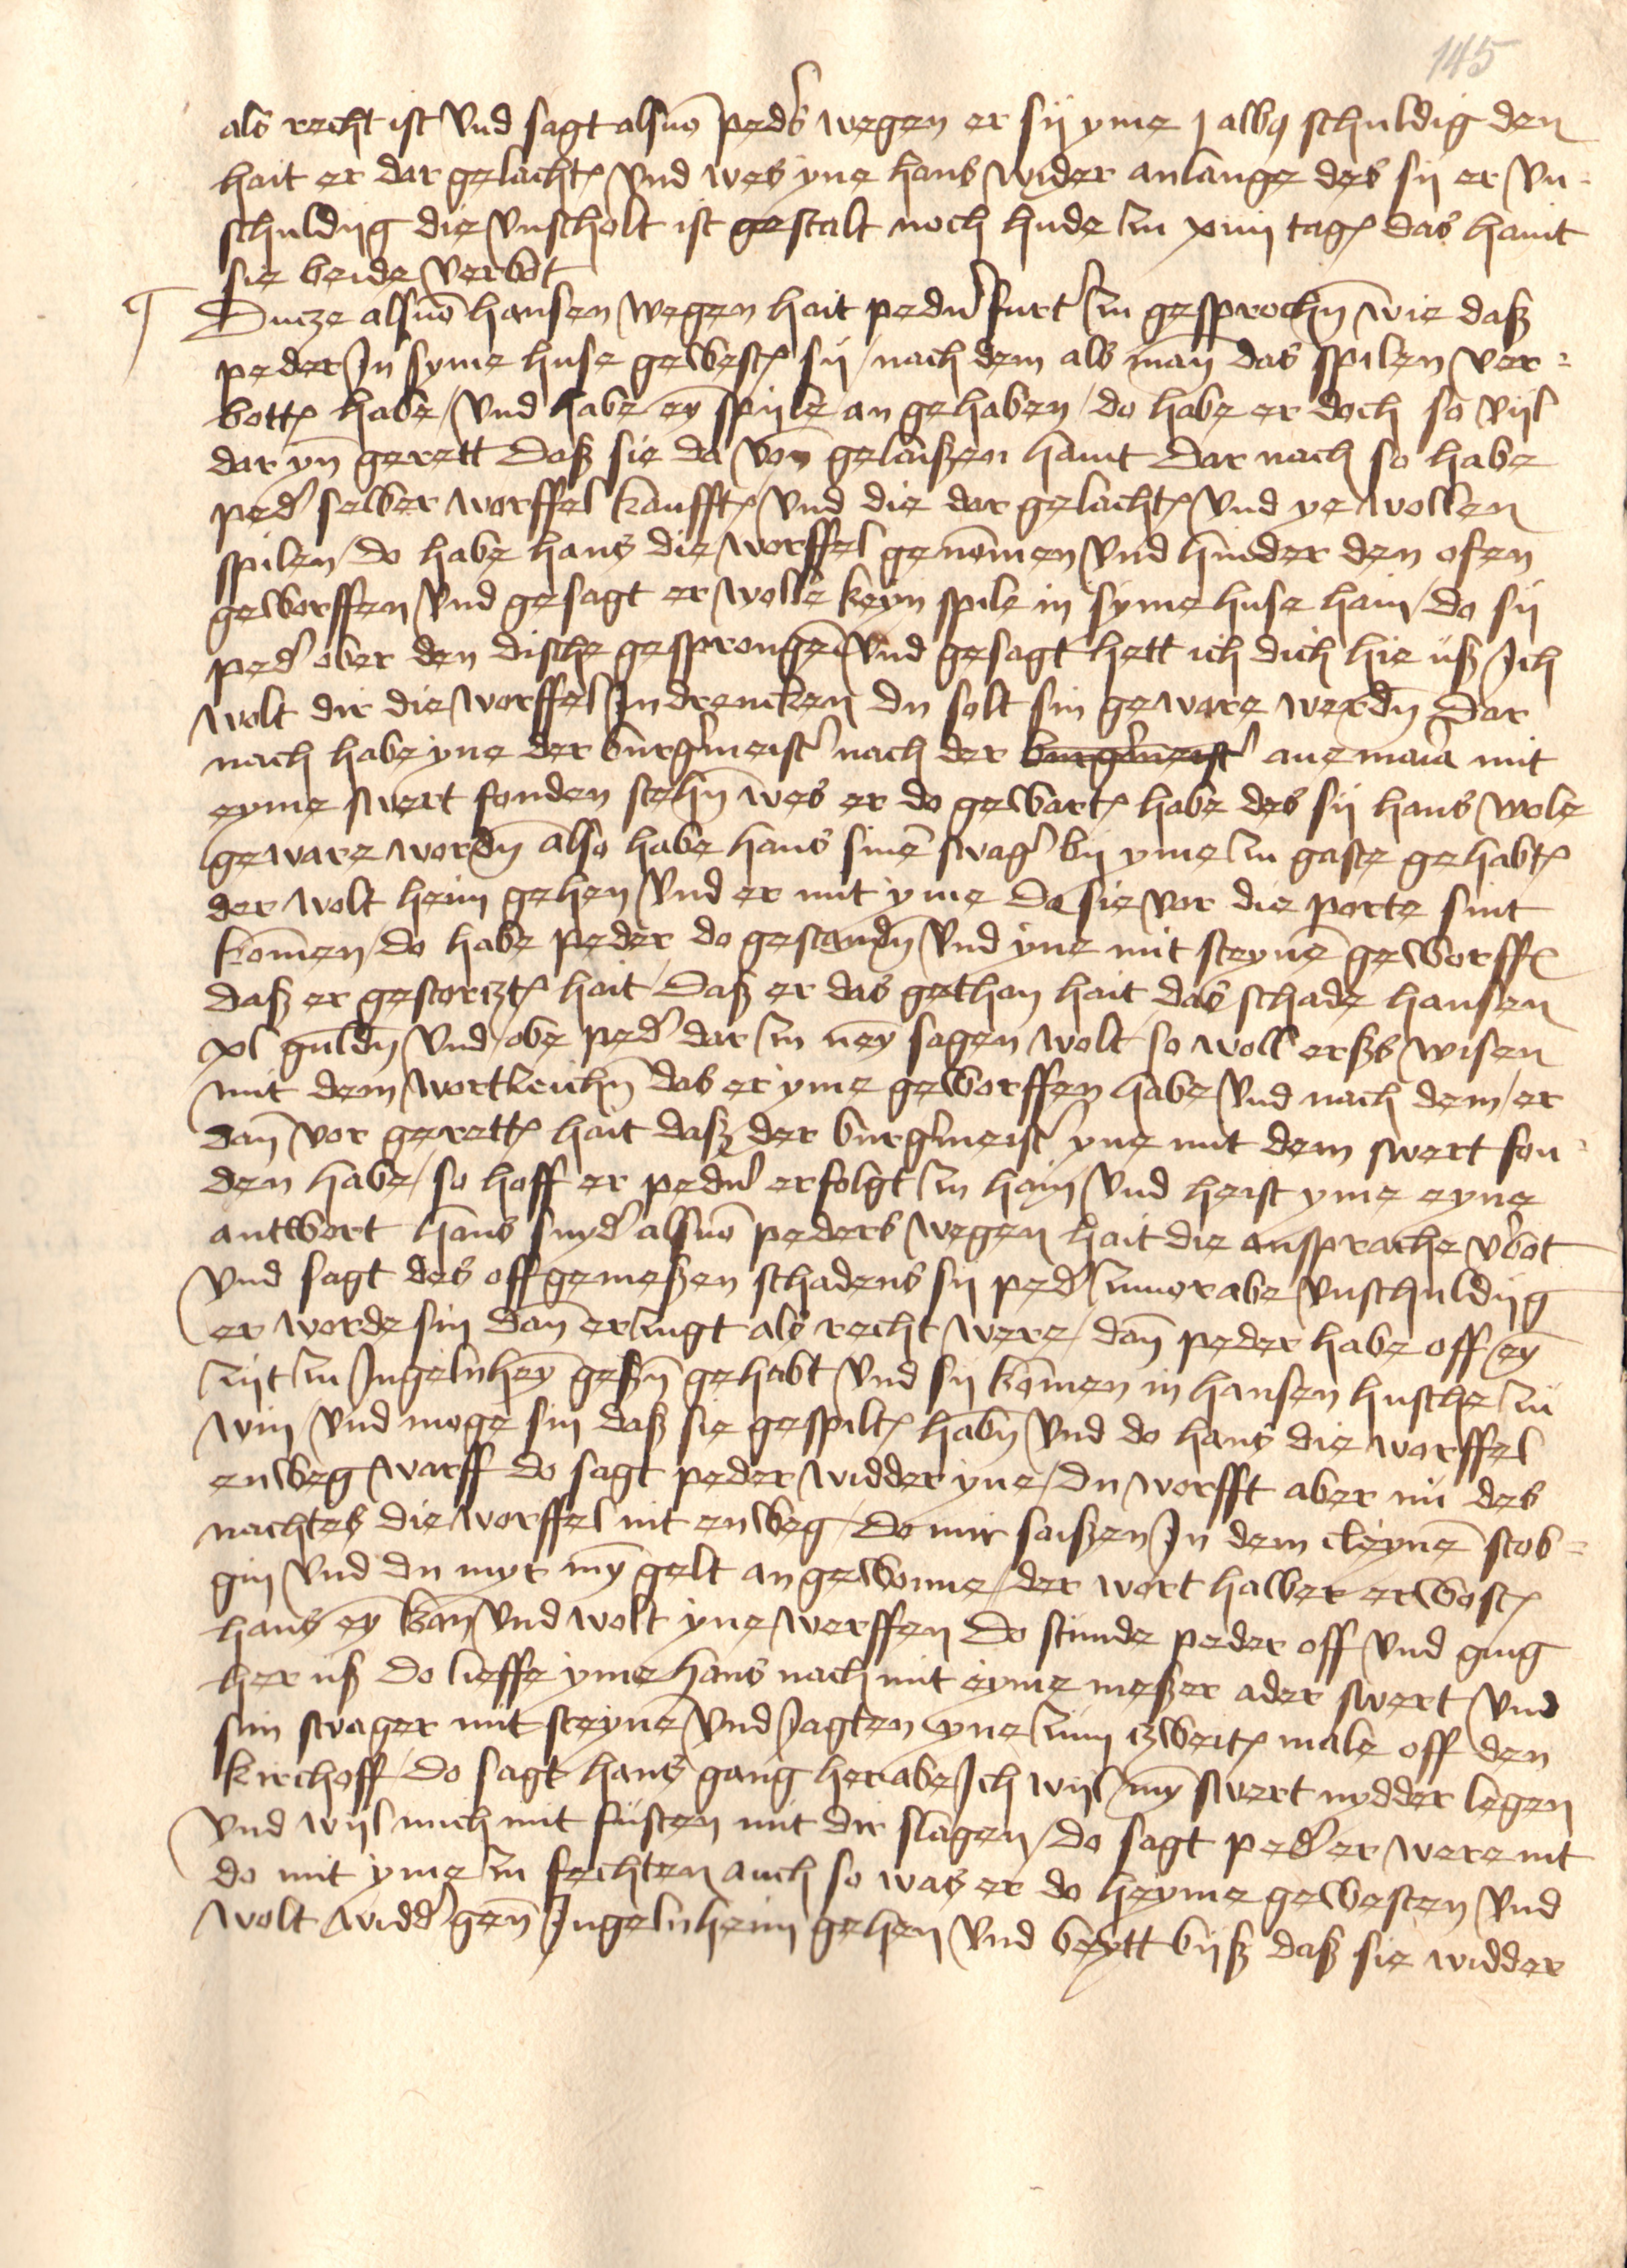 145
als recht ist vnd sagt alsuō ped's wegen er sij yme j albq schuldig den
hait er dar gelacht vnd wes yne hans wider anlange des sij er vn-
schuldijg die vnscholt ist gestalt noch hude zu xiiij tag das haint
sie beide verbot
Ducze alsuō hansen wegen hait ped'n furt' zu gesprochn̄ wie daß
peder In syme huse gewest sij / nach dem als man̄ das spilen ver-
bott habe / vnd habe eȳ spijle an gehaben / do habe er doch so vijl
dar yn̄ gerett daß sie da von gelaißen haint dar nach so habe
ped' selber worffel kaufft vnd die dar gelacht vnd ye wollen
spilen / do habe hans die worffel genōmen vnd hinder den ofen
geworffen vnd gesagt er wolle keyn spile in syme huse hain / do sij
ped' ober den dische gesprongē vnd gesagt hett ich dich hie uß Ich
wolt dir die worffel In drencken du solt sin geware werdn̄ Dar
nach habe yne der burg'meist' nach der burg'meist' aue maria mit
eyme swert fonden stehn̄ wes er do gewart habe des sij hans wole
geware wordn̄ also habe hans sinē swag' bij yme zu gaste gehabt
der wolt heim gehen vnd er mit yme Da sie vor die porte sint
kōmen / do habe peder do gestandn̄ vnd yne mit steynē geworff
daß er gestorczt hait / Daß er das gethan hait das schade hansen
xl guldn̄ vnd / obe ped' dar zu neȳ sagen wolt so woll erßs wisen
mit dem wortzeichn̄ das er yme geworffen habe vnd nach dem / er
dan̄ vor gerett hait daß der burg'meist' yne mit dem swert fon-
den habe / so hoff er ped'n erfolgt zu hain vnd heist yme eyne
antwort hans snyd' alsuō peders wegen hait die ansprache v'bot
vnd sagt des offgemeßen schadens sij ped' zuuor abe vnschuldijg
er worde sin dan̄ erzugt als recht were / dan̄ peder habe off eȳ
zijt zu Ingelnheȳ geßn̄ gehabt vnd sij kōmen in hansen husche zu
win vnd moge sin daß sie gespilt habn̄ vnd do hans die worffel
enweg warff do sagt peder widder yne / du worfft aber nü des
nachtes die worffel nit enweg / do mir saißen In dem cleynē stob-
gin vnd du myr mȳ gelt an gewonne / der wort halber erwost
hans eȳ kan̄ vnd wolt yne werffen do stunde peder off vnd ging
her uß do lieffe yme hans nach mit eyme meßer ader swert vnd
sin swager mit steynē vnd Jagten yne zum czweit male off den
kirchoff / do sagt hans gang her abe Ich wijl mȳ swert nydder legen
vnd wijl mich mit fusten mit dir slagen / do sagt ped' er were nit
do mit yme zu fechten auch so was er do heyme gewesten vnd
wolt widd' gen̄ Ingelnheim gehen vnd beytt bijß daß sie widder